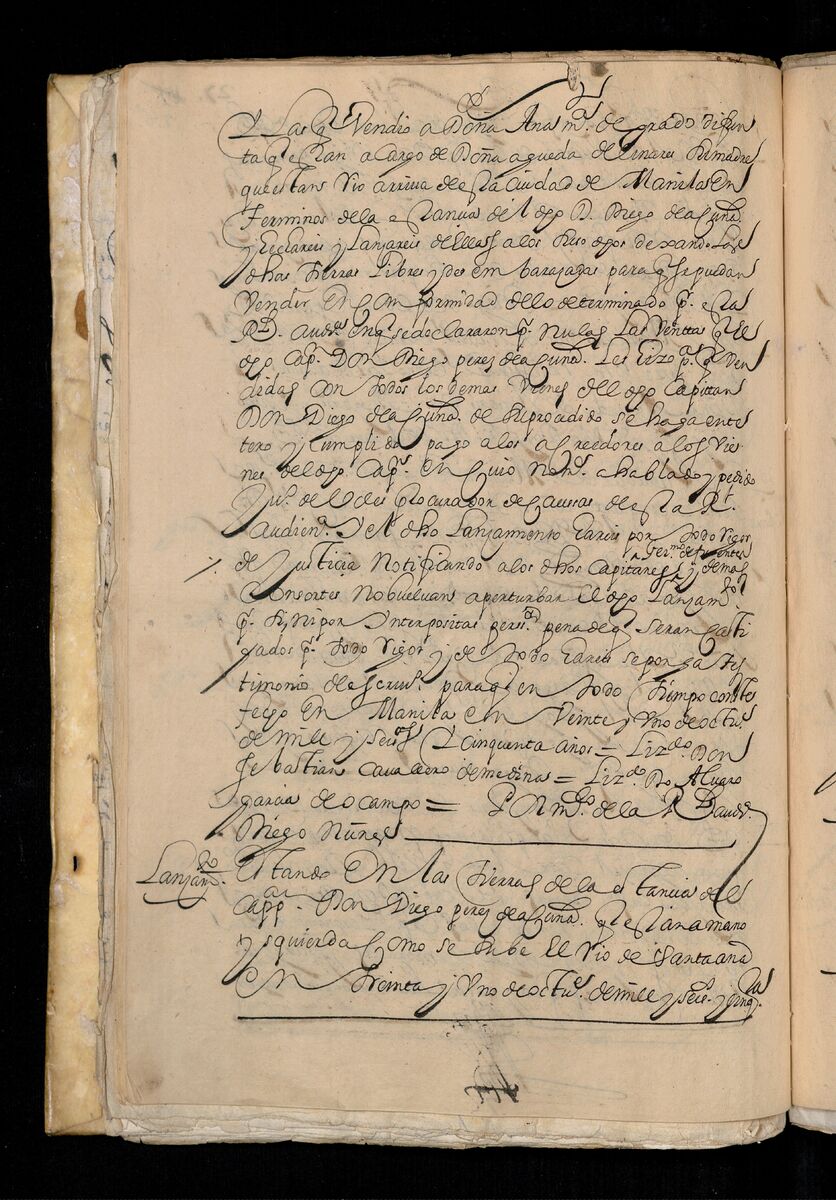 Y Las qe Vendio a Doña Ana mª. de grado difun
ta qe estan a Cargo de Doña agueda de linares su madre
que estan Rio arriva de esta Ciudad de Manila En
Terminos de la estancia del dho D. Diego de la Cuña
y Echareis y Lanzareis de Ellas a los suso dhos dexando Las
dhas tierras Libres y des em barazadas para q se puedan
Vender En Con formidad de lo determinado pr. esta
Rl. audiª En q se declararon pr. Nulas Las Ventas q El
dho Capn. Don Diego perez de la Cuña. Les hizo pª. q Ven
didas Con todos los demas Vienes del dho Capitan
Don Diego de la Cuña. de su procedido se haga ente
tero y Cumplido pago a los acreedores a los Vie
nes del dho Capn. en Cuio Nome. a hablado y pedido
Juº. de procurador de Causas de esta Rl.
audienª. Y el dho Lanzamiento hareis por todo Rigor
de Justicia Notificando a los dhos Capitanes y demas
germe. de fuentes
Consortes No buelvan a perturbar El dho Lanzamto.
pr. si Ni por Interpositas persª. pena de q seran Casti
gados pr. todo Rigor y de todo hareis se ponga tes
timonio de escrivº. para q en todo tiempo conste
fecho En Manila en Veinte y Uno de octue.
de mille y seisos Y cinquenta años = Lizdo. Don
sebastian Cavallero de medina = Lizdo. Do. Alvaro
garcia de ocampo = Pr mdo. de la Rl audiª.
Diego Nuñes
Lanzamto.
Estando En las tierras de la estancia del
Capp.an Don Diego perez de la Cuña. qe esta a mano
ysquierda Como se sube El Rio de santa ana
En treinta y Uno de octue. de mille y seis. y cinqta